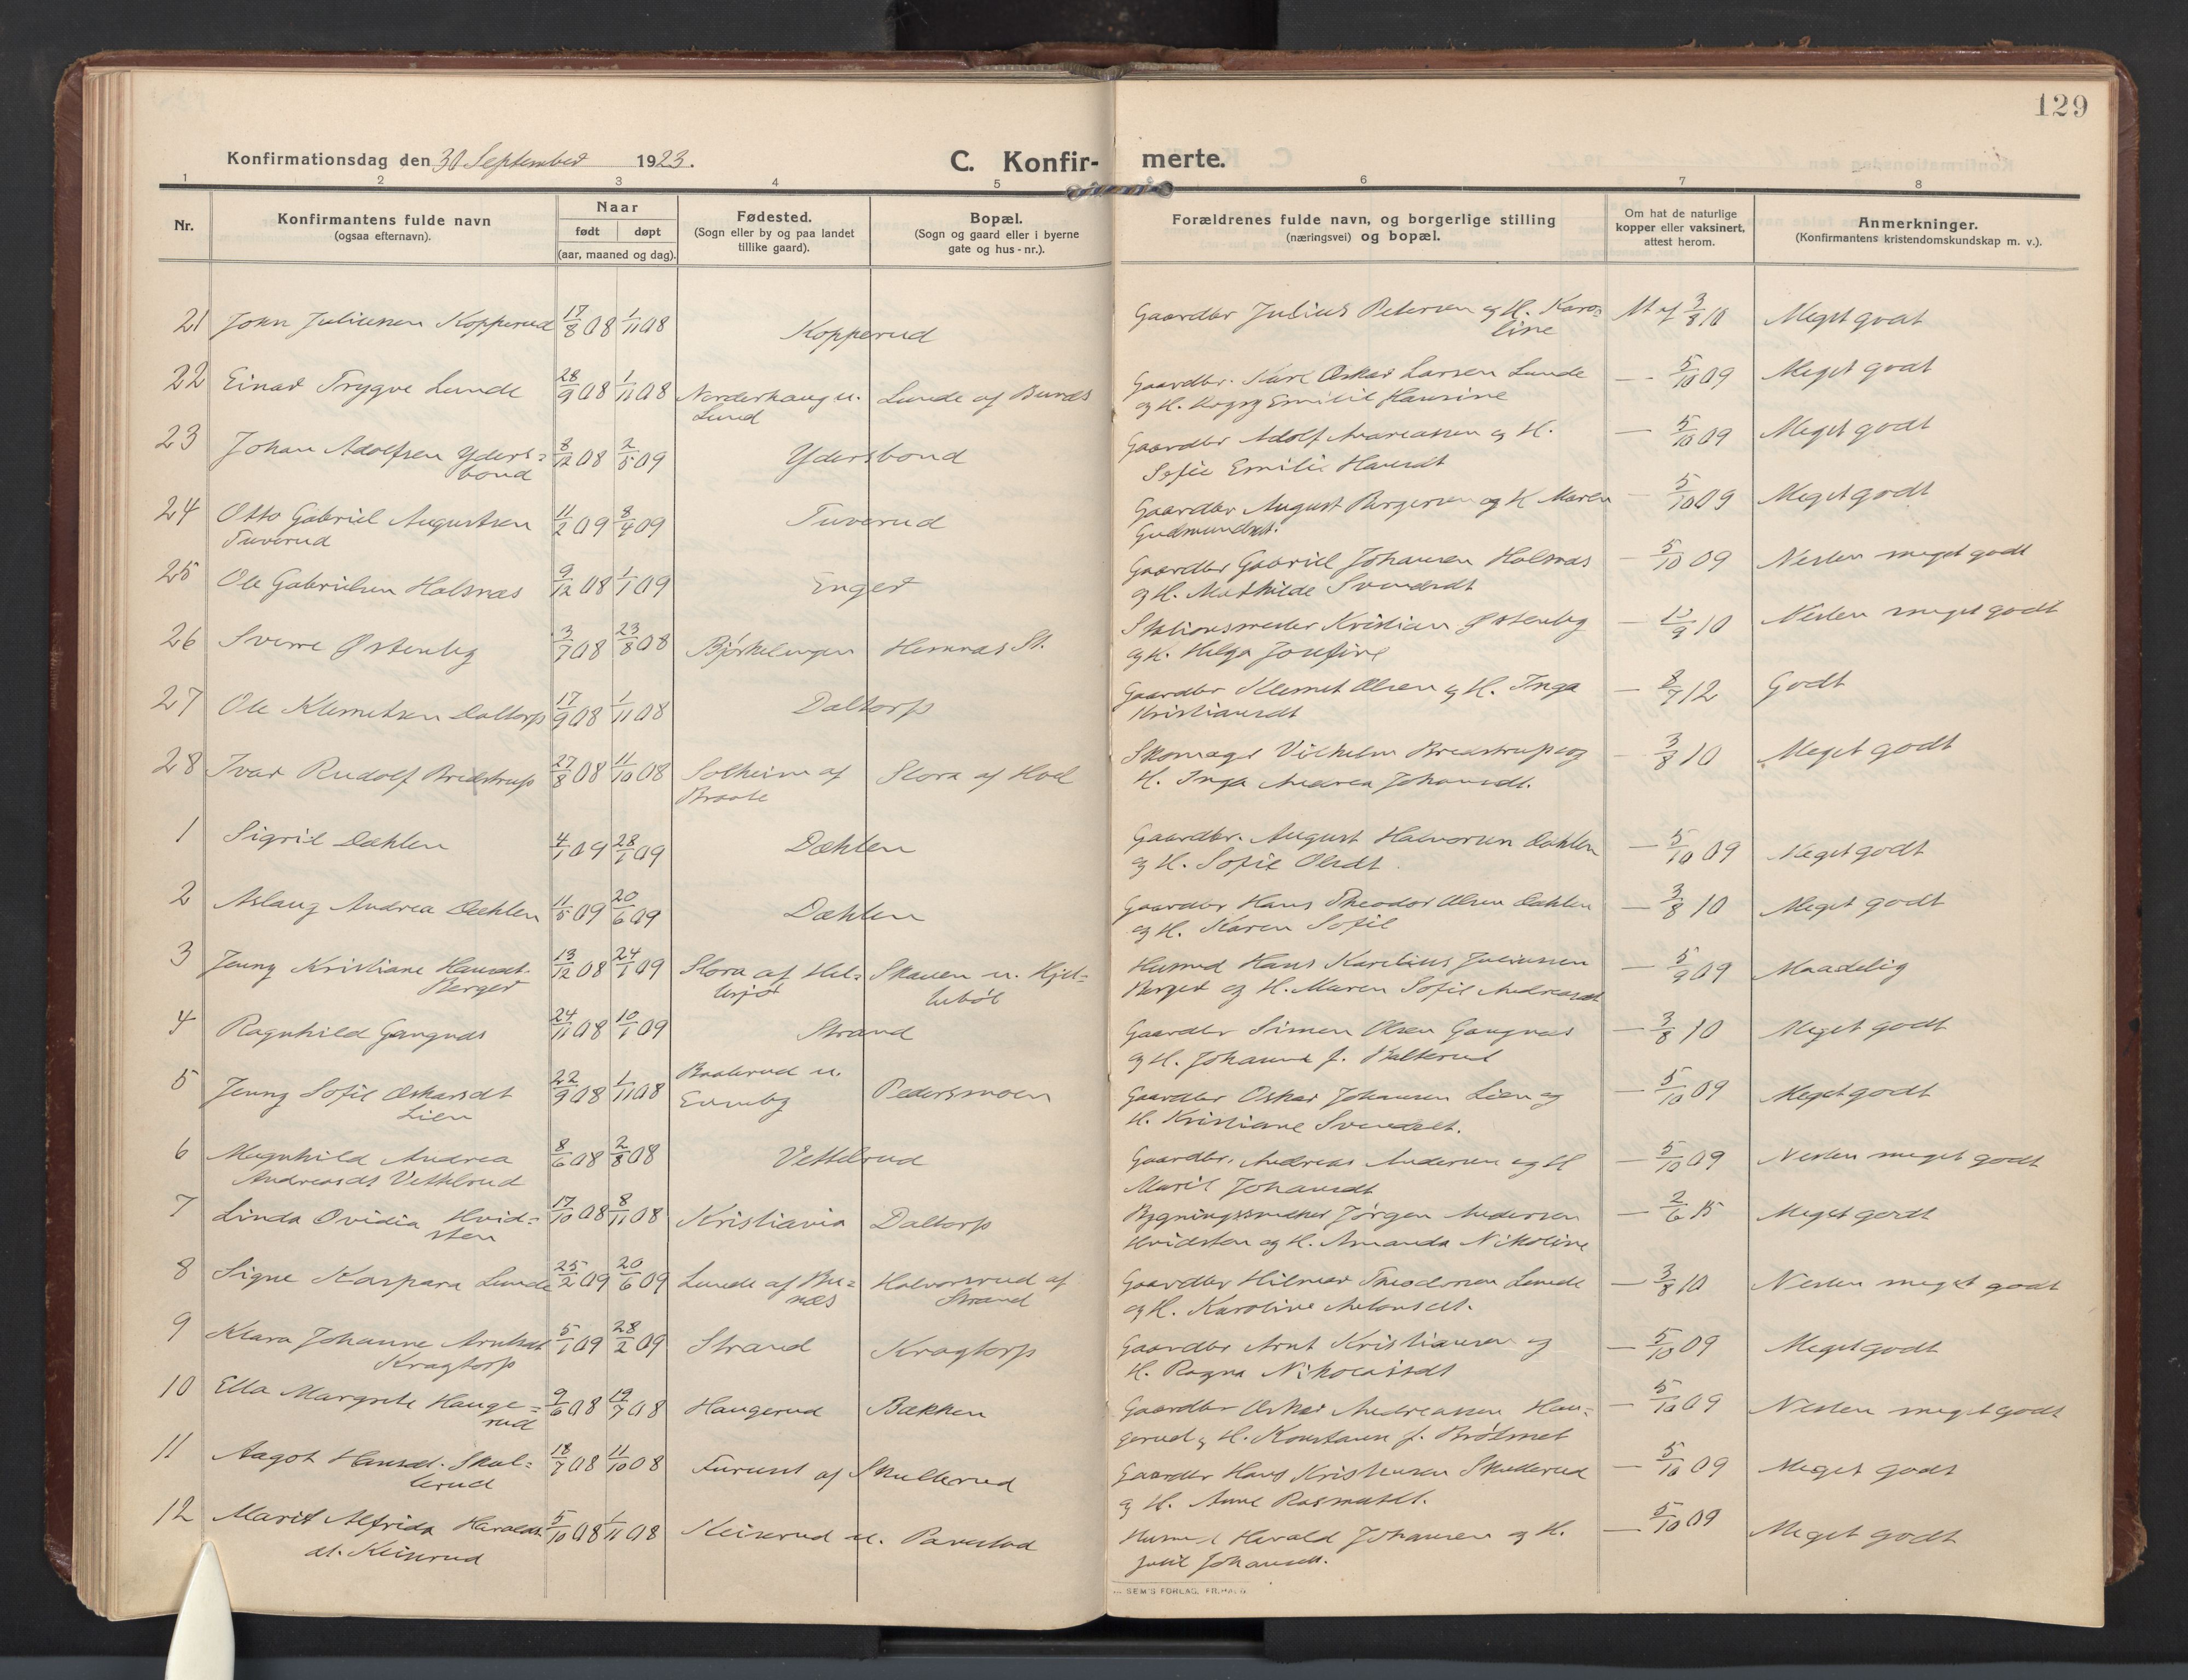 129
Konfirmationsdag den 30 September 1923.
C. Konfir- merte.
1 2 3 4 5 6 7 8
Nr.
Konfirmantens fulde navn
(ogsaa efternavn).
Naar
født døpt
(aar, maaned og dag).
Fødested.
(Sogn eller by og paa landet
tillike gaard).
Bopæl.
(Sogn og gaard eller i byerne
gate og hus-nr.).
Forældrenes fulde navn, og borgerlige stilling
(næringsvei) og bopæl.
Om hat de naturlige
kopper eller vaksinert,
attest herom.
Anmerkninger.
(Konfirmantens kristendomskundskap m. v.).
21 John Juliussen Kopperud 17/8 08 1/11 08 Kopperud Gaardbr Julius Petersen og H. Karo=
line 3/8 10 Meget godt
22 Einar Trygve Lunde 28/9 08 1/11 08 Nordenhaug u.
Lund Lunde af Bunæs Gaardbr. Karl Oskar Larsen Lunde
og H. Emilie Hansine — 5/10 09 Meget godt
23 Johan Adolfsen Yders=
bond 8/12 08 2/5 09 Ydersbond Gaardbr Adolf Andreassen og H.
Sofie Emilie Hansdt — 5/10 09 Meget godt
24 Otto Gabriel Augustsen
Tuverud 11/2 09 8/4 09 Tuverud Gaardbr August Borgersen og H Maren
Gudmundsdt. — 5/10 09 Meget godt
25 Ole Gabrielsen Holsnæs 9/12 08 1/1 09 Enger Gaardbr Gabriel Johansen Holsnæs
og H. Mathilde Svendsdt — 5/10 09 Nesten meget godt
26 Sverre Østenby 3/7 08 23/8 08 Bjørkelangen Hemnæs St. Stationsmester Kristian Østenby
og H. Helga Josefine — /9 10 Nesten meget godt
27 Ole Klemetsen Daltorp 17/9 08 1/11 08 Daltorp Gaardbr Klemet Olsen og H. Inga
Kristiansdt — 8/7 12 Godt
28 Ivar Rudolf Bredstrup 27/8 08 11/10 08 Solheim af
Braate Slora af Hoel Skomager Vilhelm Bredstrup og
H. Inga Andrea Johansdt. — 3/8 10 Meget godt
1 Sigrid Dæhlen 4/1 09 28/1 09 Dæhlen Gaardbr. August Halvorsen Dæhlen
og H. Sofie Olsdt. — 5/10 09 Meget godt
2 Aslaug Andrea Dæhlen 11/5 09 20/6 09 Dæhlen Gaardbr Hans Theodor Olsen Dæhlen
og H. Karen Sofie — 3/8 10 Meget godt
3 Jenny Kristiane Hansdt.
Berger 13/12 08 24/1 09 Slora af Hel=
lesjø Skauen u. Kjel=
lebøl Husmd Hans Karelius Juliussen
Berger og H. Maren Sofie Andreasdt — 5/9 09 Maadelig
4 Ragnhild Gangnæs 24/11 08 10/1 09 Strand Gaardbr Simen Olsen Gangnæs
og H. Johanne f. Kalterud — 3/8 10 Meget godt
5 Jenny Sofie Oskarsdt
Lien 22/9 08 1/11 08 Baalerud u.
Evenby Pedersmoen Gaardbr Oskar Johansen Lien og
H. Kristiane Svendsdt. — 5/10 09 Meget godt
6 Magnhild Andrea
Andreasdt Vettelrud 8/6 08 2/8 08 Vettelrud Gaardbr. Andreas Andersen og H
Marie Johansdt — 5/10 09 Nesten meget godt
7 Linda Ovidia Hvid=
sten 17/10 08 8/11 08 Kristiania Daltorp Bygningssnedker Jørgen Andersen
Hvidsten og H. Amanda Nikoline — 2/6 15 Meget godt
8 Signe Kaspara Lunde 25/2 09 20/6 09 Lunde af Bu=
næs Halvorsrud af
Strand Gaardbr Hilmar Theodorsen Lunde
og H. Karoline Antonsdt. — 3/8 10 Nesten meget godt
9 Klara Johanne Arntsdt
Kragtorp 5/1 09 28/2 09 Strand Kragtorp Gaardbr Arnt Kristiansen og
H. Ragna Nikolaisdt — 5/10 09 Meget godt
10 Ella Margrete Hauge=
rud 9/6 08 19/7 08 Haugerud Bakken Gaardbr Oskar Andreassen Hau=
gerud og H. Konstanse f. Brøtmet — 5/10 09 Nesten meget godt
11 Aagot Hansdt. Skul=
lerud 18/7 08 11/10 08 Furunt af Skullerud Gaardbr Hans Kristensen Skullerud
og H. Anne Rasmusdt. — 5/10 09 Meget godt
12 Marit Alfrida Haralds=
dt. Keiserud 5/10 08 1/11 08 Keiserud u. Parestad Husmd Harald Johansen og H.
Julie Johansdt. — 5/10 09 Meget godt
SEM'S FORLAG, FR.HALD